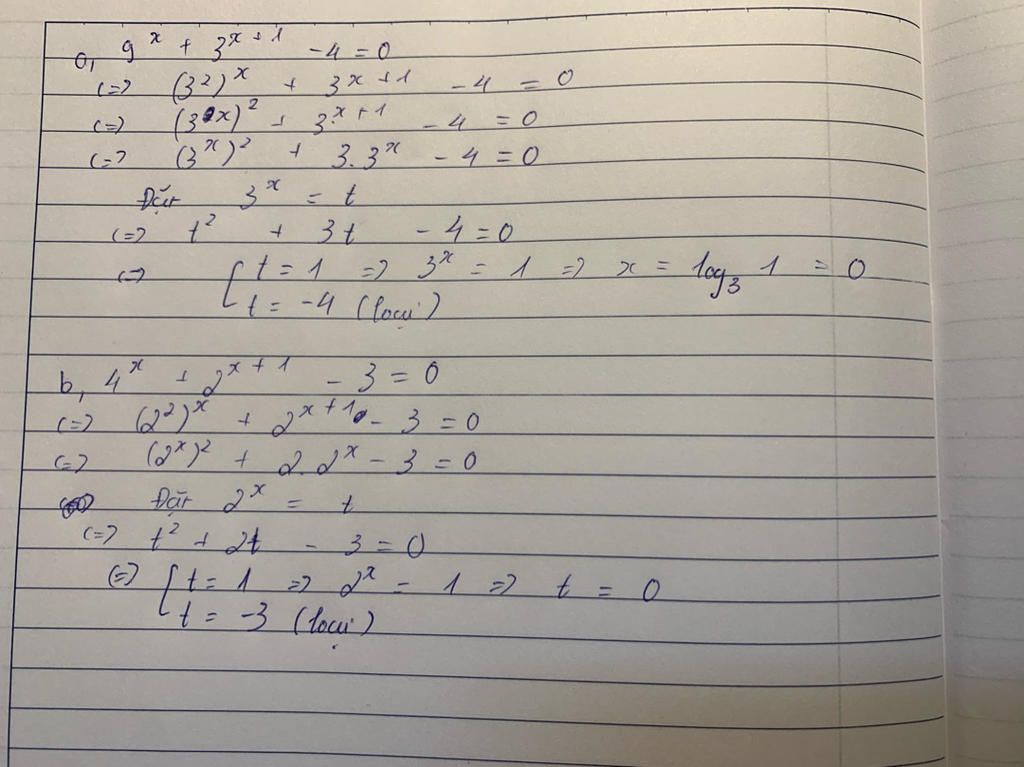 a, 9^x + 3^{x+1} - 4 = 0
<=> (3^2)^x + 3^{x+1} - 4 = 0
<=> (3^x)^2 + 3^{x+1} - 4 = 0
<=> (3^x)^2 + 3.3^x - 4 = 0
Đặt 3^x = t
<=> t^2 + 3t - 4 = 0
<=> [ t = 1 => 3^x = 1 => x = log_3 1 = 0
t = -4 (loại)
b, 4^x + 2^{x+1} - 3 = 0
<=> (2^2)^x + 2^{x+1} - 3 = 0
<=> (2^x)^2 + 2.2^x - 3 = 0
Đặt 2^x = t
<=> t^2 + 2t - 3 = 0
<=> [ t = 1 => 2^x = 1 => t = 0
t = -3 (loại)